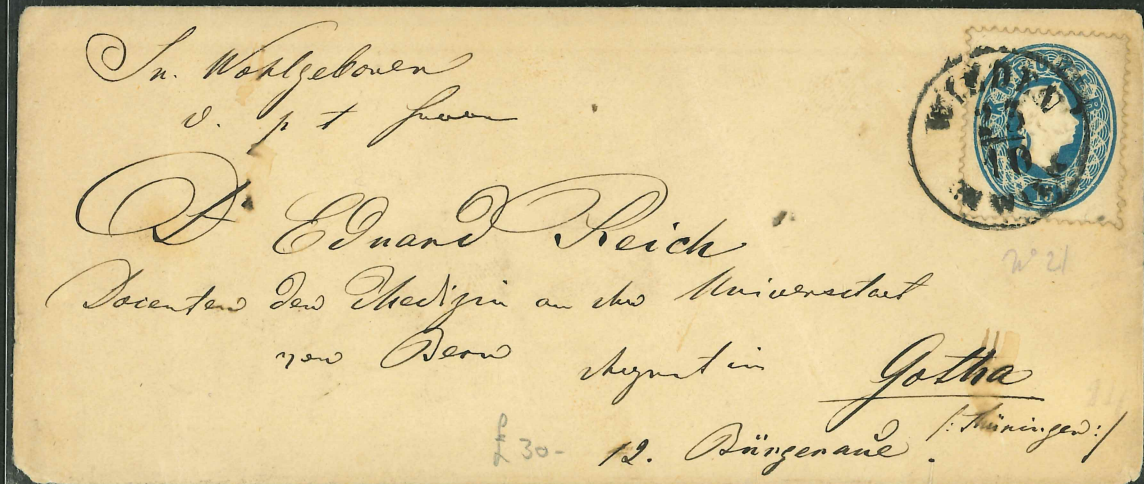 Sr. Wohlgeboren
d. p t Herrn
Dr Eduard Reich
Docenten der Medizin an der Universitaet
von Bern
in Gotha
/: Thüringen :/
12. Bürgeraue.
No 21
£ 30-
WIEDEN
12
10
WIEN